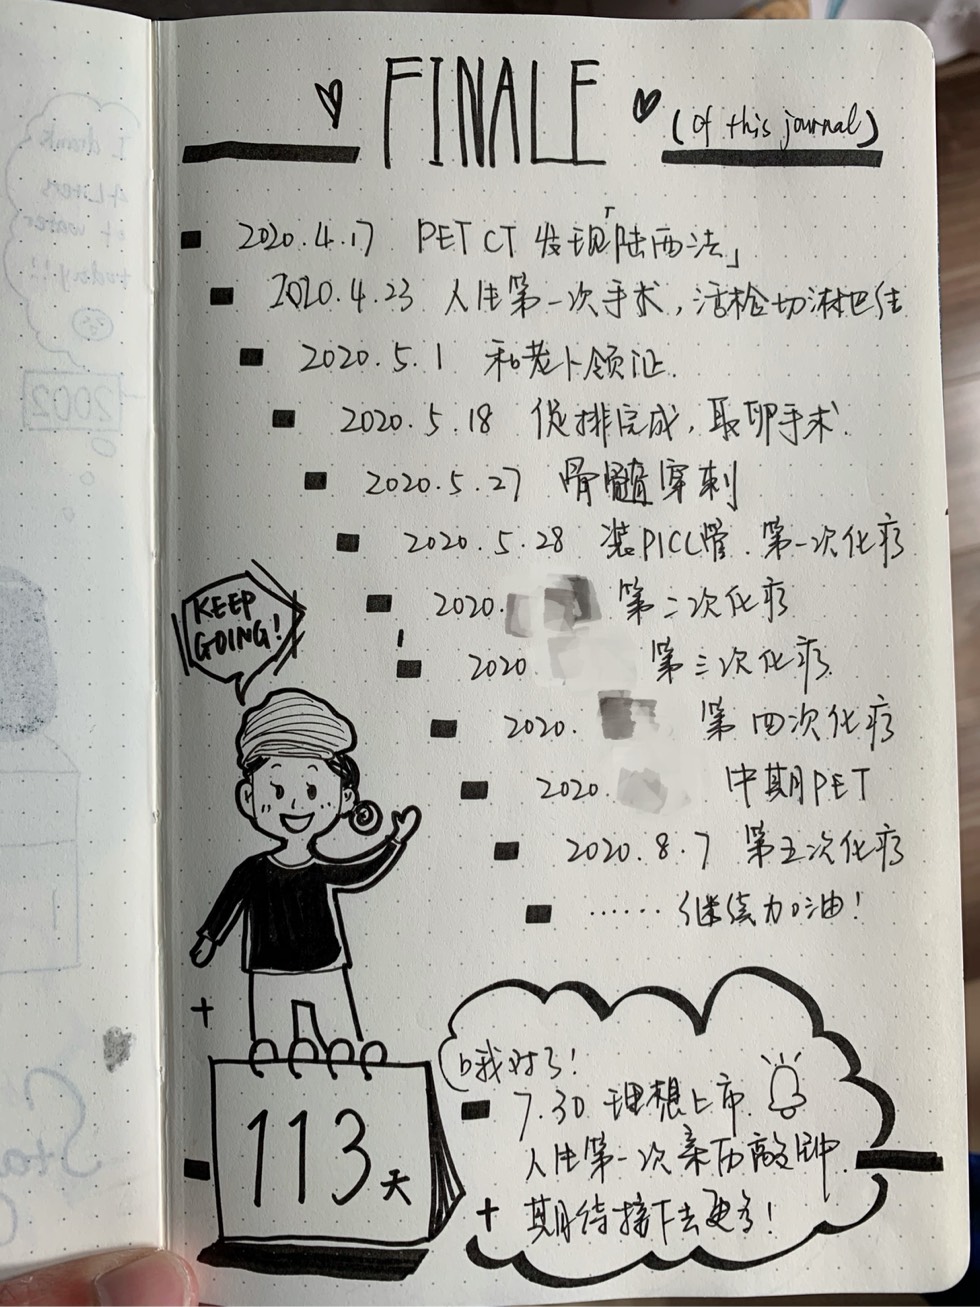 FINALE
(of this journal)
2020.4.17 PET CT 发现「陆西法」
2020.4.23 人生第一次手术,活检切淋巴结
2020.5.1 和老卜领证.
2020.5.18 促排完成,取卵手术.
2020.5.27 骨髓穿刺
2020.5.28 装PICC管.第一次化疗
2020. 第二次化疗
2020 第三次化疗.
2020. 第四次化疗
2020. 中期PET
2020.8.7 第五次化疗
……继续加油!
KEEP
GOING!
113天
哦对了!
7.30 理想上市
人生第一次亲历敲钟.
+ 期待接下去更多!
I drank
4 Liters
of water
today!!!
2002
Sta